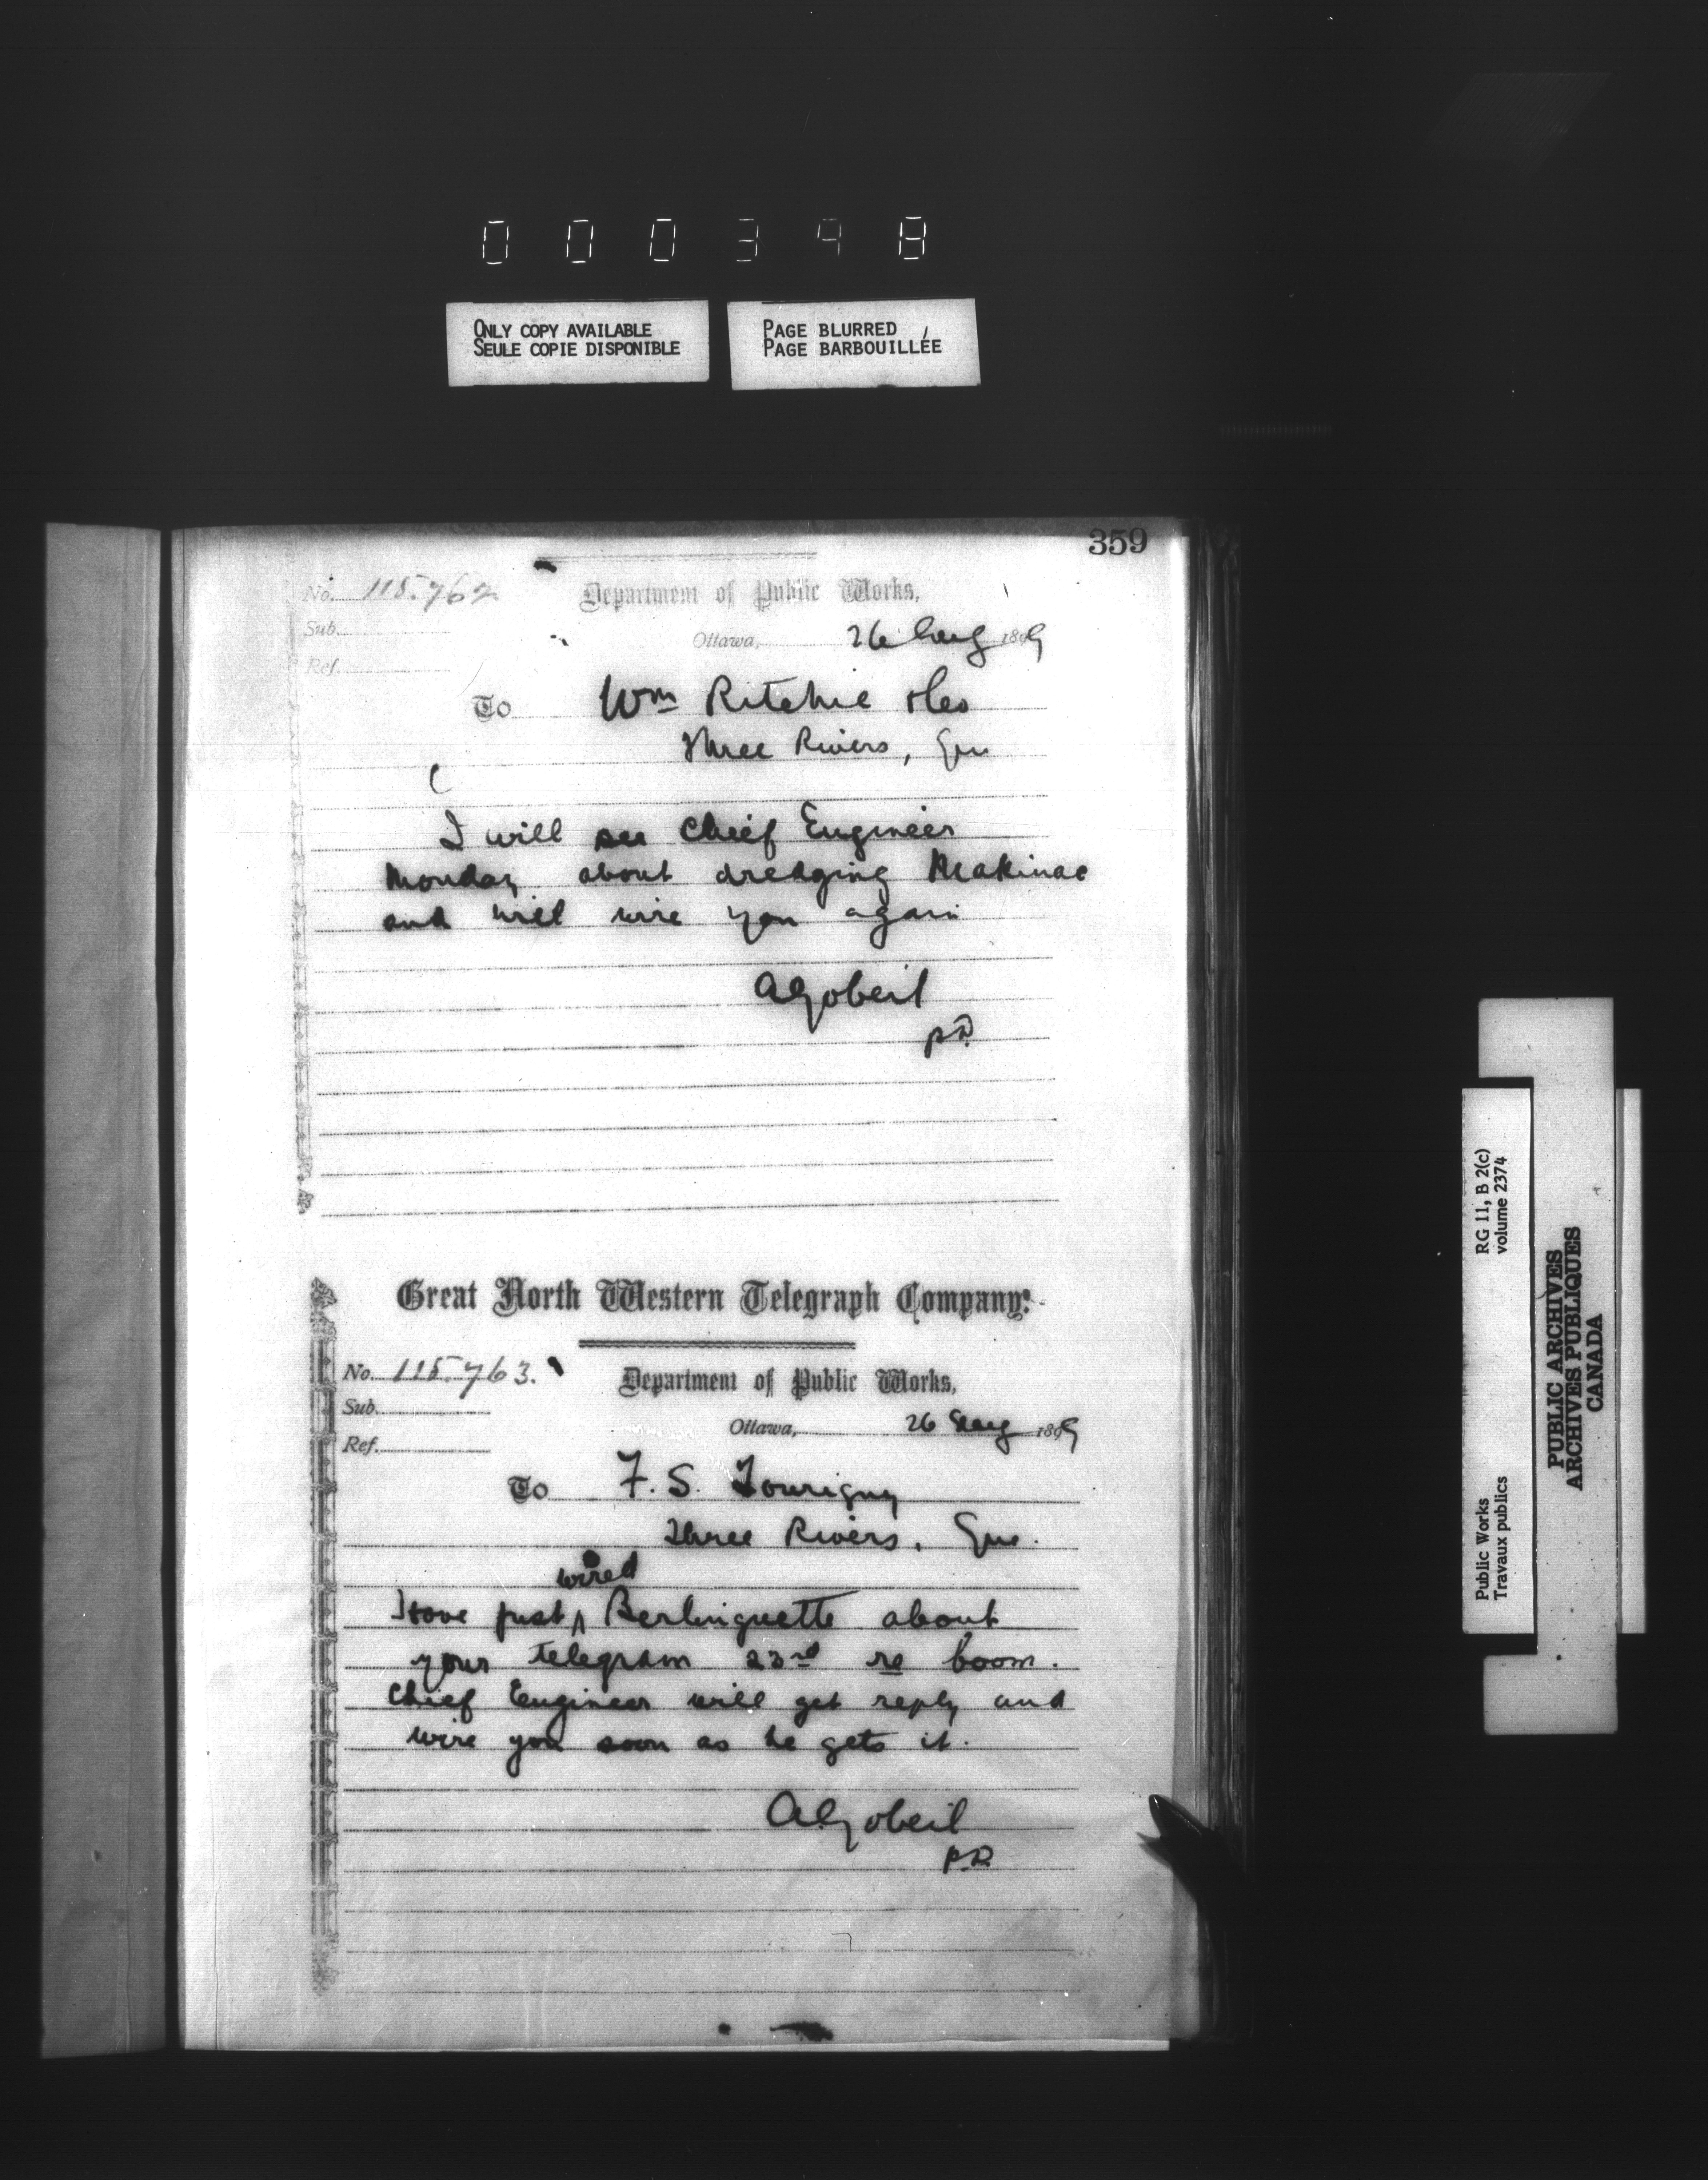 000348
ONLY COPY AVAILABLE
SEULE COPIE DISPONIBLE
PAGE BLURRED
PAGE BARBOUILLÉE
359
No. 115.762
Department of Public Works,
Sub.
Ottawa, 26 Aug 1899
Ref.
To Wm Ritchie &Co
Three Rivers, Que
I will see Chief Engineer
Monday about dredging Makinac
and will wire you again
AGobeil
Great North Western Telegraph Company.
No. 115.763.
Department of Public Works,
Sub.
Ottawa, 26 Aug 1899
Ref.
To F. S. Tourigny
Three Rivers, Que.
wired
Have just ^ Berlinguette about
your telegram 23rd re boom.
Chief Engineer will get reply and
wire you soon as he gets it.
AGobeil
p.D.
Public Works
Travaux publics
RG 11, B 2(c)
volume 2374
PUBLIC ARCHIVES
ARCHIVES PUBLIQUES
CANADA